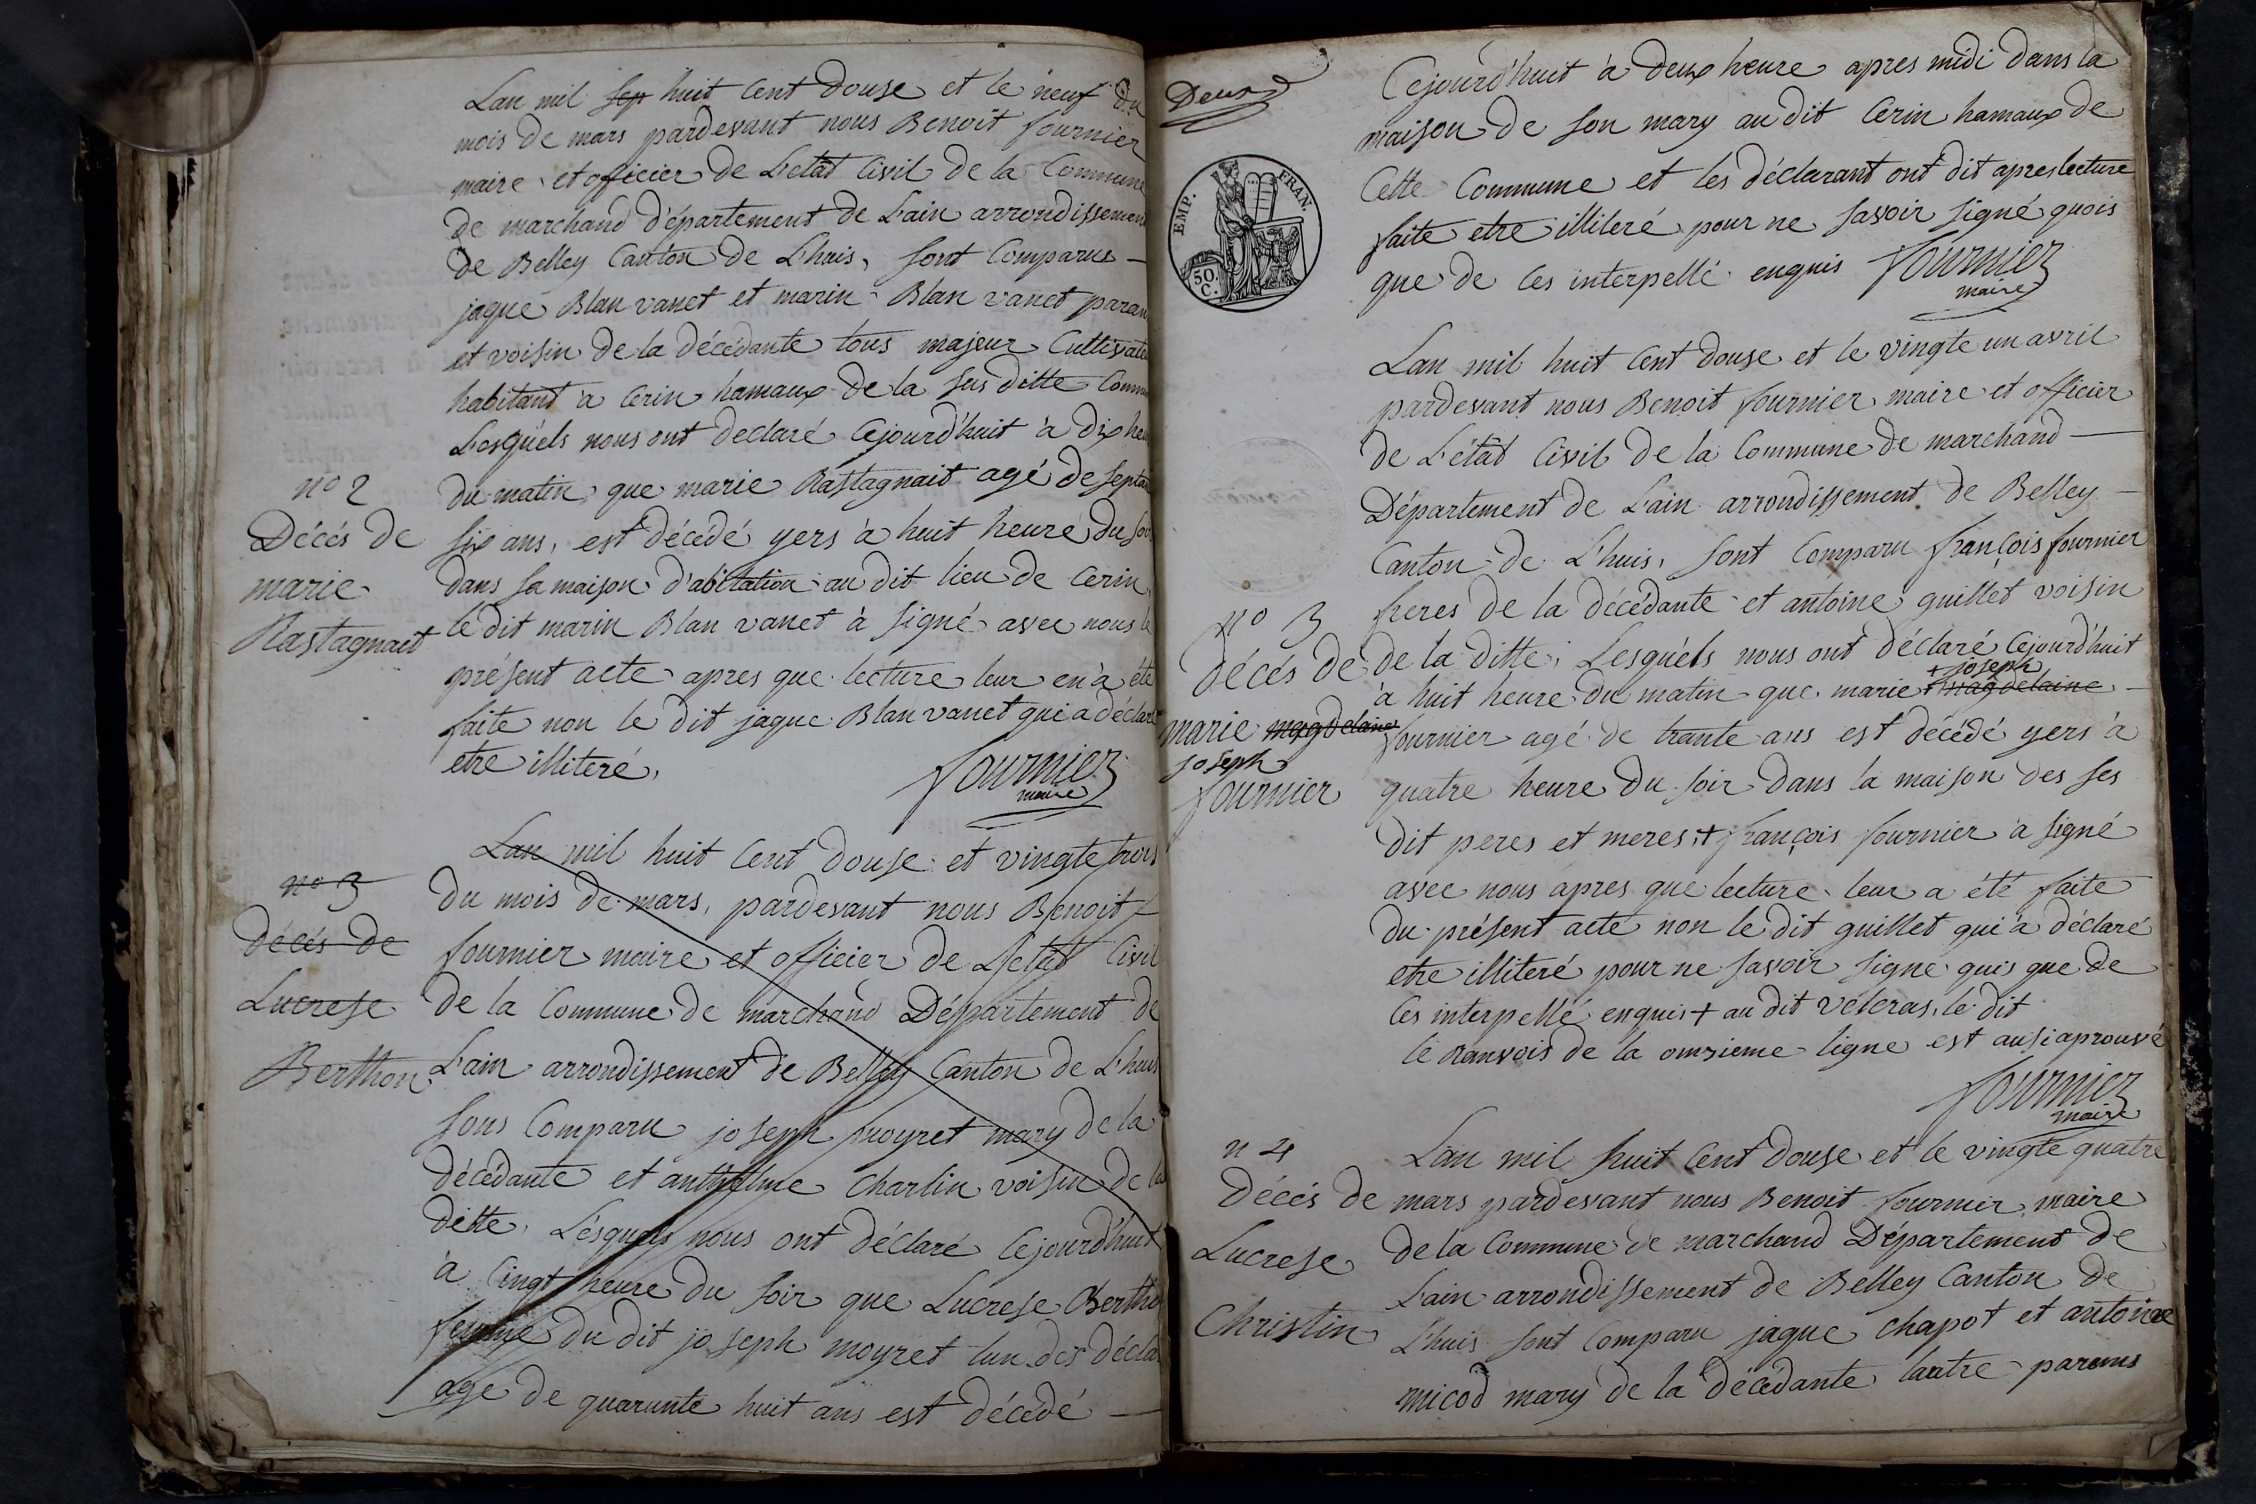 Lan mil sep huit Cent Douse et le neuf Du
mois de mars pardevant nous Benoit fournier
maire et officier de Letat Civil de la Commune
de marchand Département de Lain arrondissement
de Belley Canton de Lhuis, sont Comparus
jaque Blan vanet et marin Blan vanet paran
et voisin de la décédante tous majeur Cultivate
habitant a Cerin hamaux de la sus ditte Commu
Lesquels nous ont declaré Cejourd'huit à dix heu
no 2
Décés de
marie
Rastagnait
du matin, que marie Rastagnait agé de septan
six ans, est décédé yers à huit heure du soi
dans sa maison d'abitation au dit lieu de Cerin,
le dit marin Blan vanet à signé avec nous le
présent acte apres que lecture leur en à été
faite non le dit jaque Blan vanet qui a déclaré
etre illiteré,
fournier
maire
Lan mil huit Cent Douse et vingte trois
no 3
Décés de
Lucrese
Berthon
du mois de mars, pardevant nous Benoit
fournier maire et officier de Letat Civil
de la Commune de marchand Département de
Lain arrondissement de Belley Canton de Lhuis
sons Comparu joseph moyret mary de la
décédante et anthelme Charlin voisin de la
ditte, Lésquels nous ont déclaré Cejourd'huit
à Cinqt heure du soir que Lucrese Bertho
femme du dit joseph moyret lun des décla
age de quarante huit ans est décédé
Deux
EMP. FRAN.
50.
C.
Cejourd'huit à deux heure apres midi dans la
maison de son mary au dit Cerin hamaux de
Cette Commune et les déclarant ont dit apres lecture
faite etre illiteré pour ne savoir signé quois
que de Ces interpellé enquis fournier
maire
Lan mil huit Cent Douse et le vingte un avril
pardevant nous Benoit fournier maire et officier
de L'état Civil de la Commune de marchand
Département de Lain arrondissement de Belley
Canton de L'huis, sont Comparu françois fournier
no 3
décés de
marie magdelaine
joseph
fournier
freres de la décédante et antoine guillet voisin
de la ditte, Lesquels nous ont déclaré Cejourd'huit
+ joseph
à huit heure du matin que marie + magdelaine
fournier agé de trante ans est décédé yers à
quatre heure du soir dans la maison des ses
dit peres et meres, + françois fournier a signé
avec nous apres que lecture leur a été faite
du présent acte non le dit guillet qui a déclaré
etre illiteré pour ne savoir signe quis que de
Ces interpellé enquis + au dit veleras, le dit
le ranvois de la omzieme ligne est ausi aprouvé
fournier
maire
n 4
Décés de
Lucrese
Christin
Lan mil huit Cent Douse et le vingte quatre
mars pardevant nous Benoit fournier maire
de la Commune de marchand Département de
Lain arrondissement de Belley Canton de
Lhuis sont Comparu jaque Chapot et antoine
micod mary de la décédante lautre parans